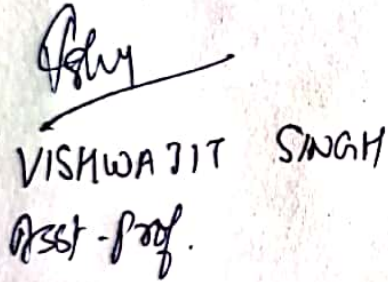 Vishy
VISHWAJIT SINGH
Asst - Prof.